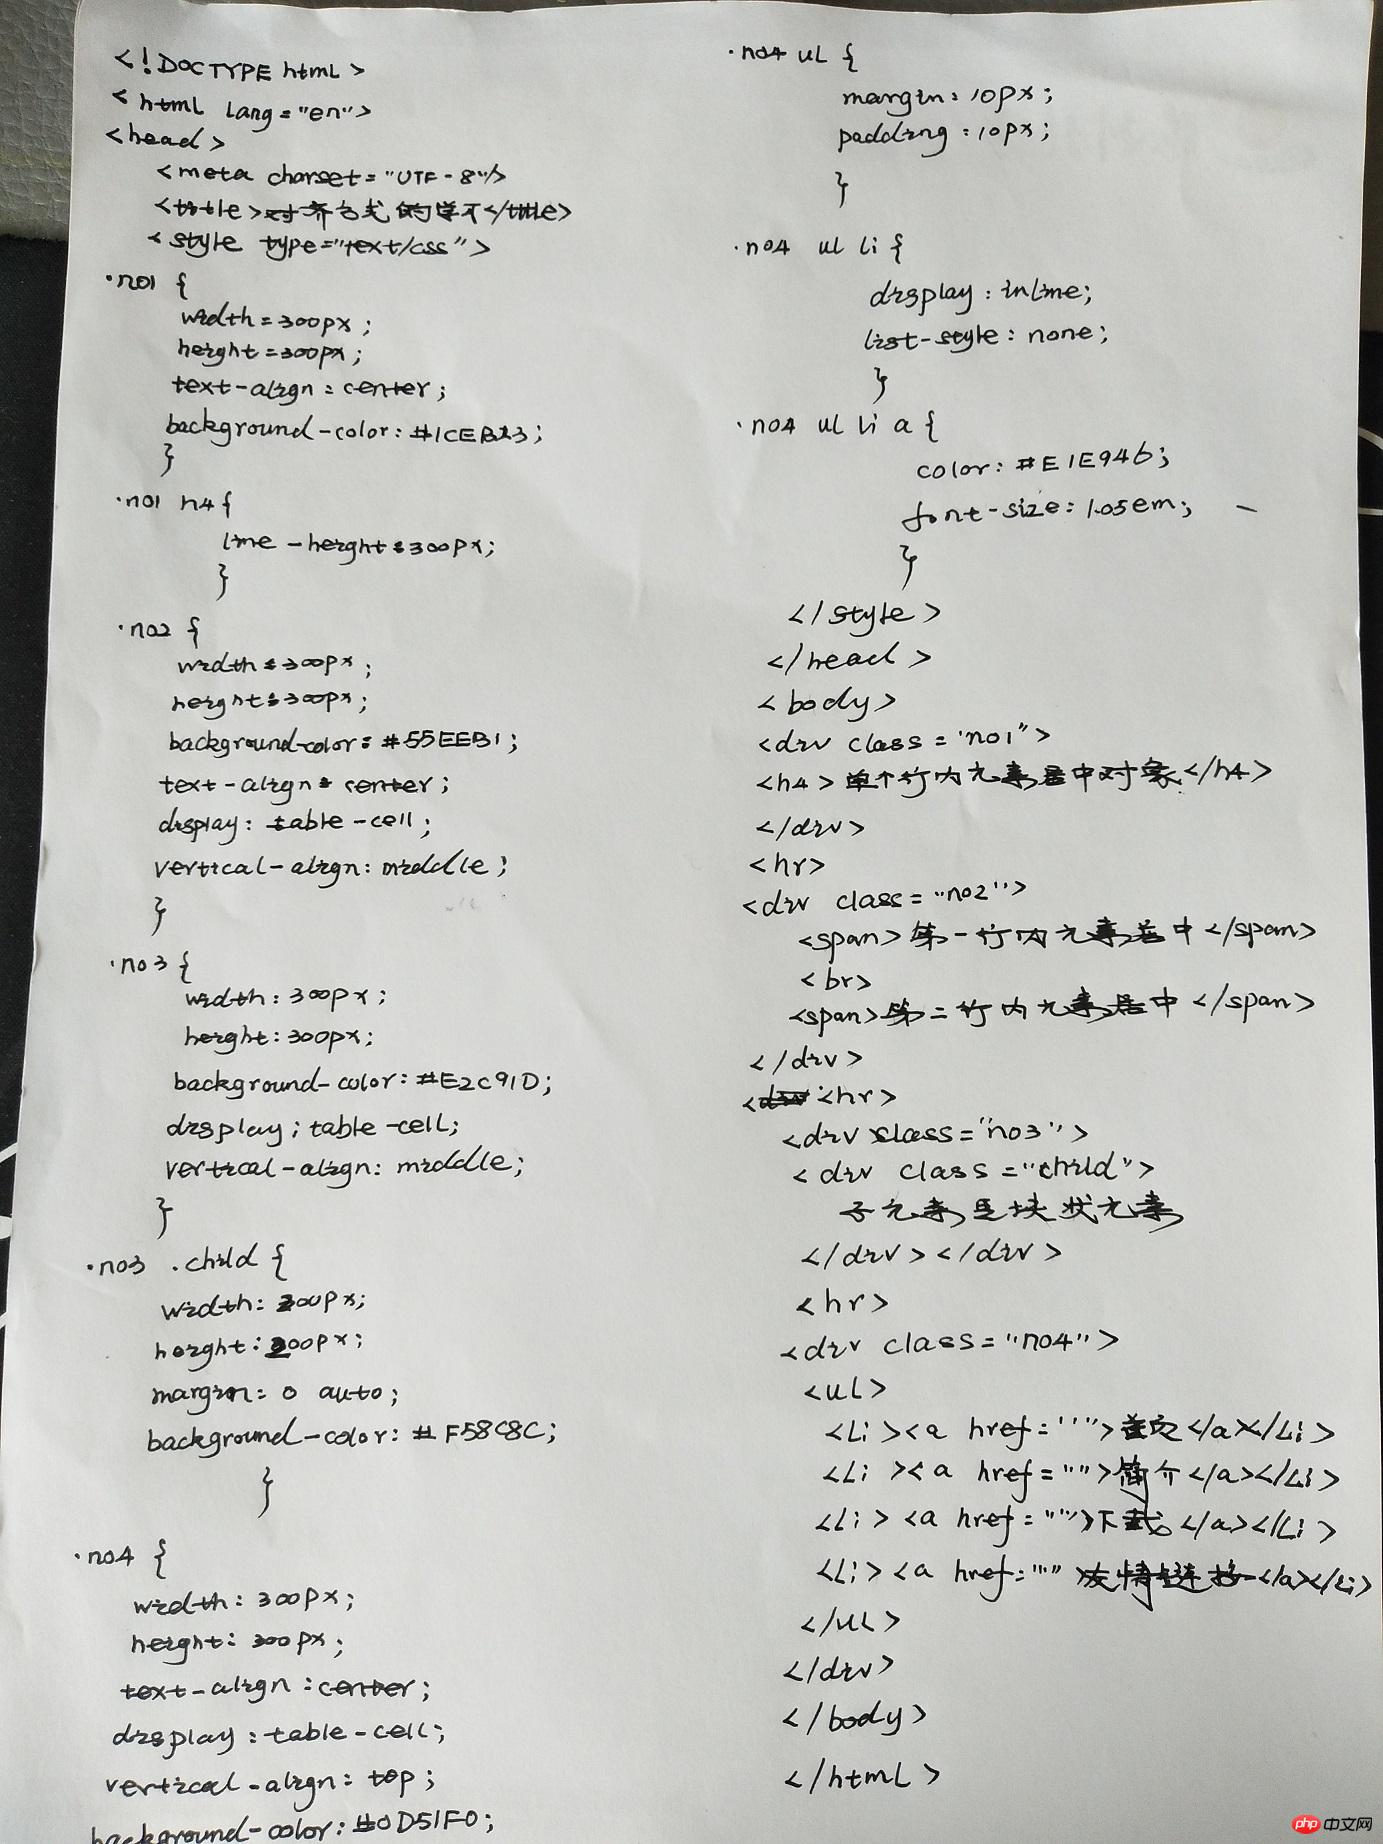 <!DOCTYPE html>
<html lang="en">
<head>
<meta charset="UTF-8"/>
<title>对齐方式的学习</title>
<style type="text/css">
.no1 {
width:300px;
height:300px;
text-align:center;
background-color:#1CEB23;
}
.no1 h4{
line-height:300px;
}
.no2 {
width:300px;
height:300px;
background-color:#55EEB1;
text-align:center;
display:table-cell;
vertical-align:middle;
}
.no3 {
width:300px;
height:300px;
background-color:#E2C91D;
display;table-cell;
vertical-align:middle;
}
.no3 .child {
width:200px;
height:200px;
margin:0 auto;
background-color:#F58C8C;
}
.no4 {
width:300px;
height:300px;
text-align:center;
display:table-cell;
vertical-align:top;
background-color:#0D51F0;
.no4 ul {
margin:10px;
padding:10px;
}
.no4 ul li {
display:inline;
list-style:none;
}
.no4 ul li a {
color:#E1E946;
font-size:1.05em;
}
</style>
</head>
<body>
<div class="no1">
<h4>单个行内元素居中对象</h4>
</div>
<hr>
<div class="no2">
<span>第一行内元素居中</span>
<br>
<span>第二行内元素居中</span>
</div>
<hr>
<div class="no3">
<div class="child">
子元素是块状元素
</div></div>
<hr>
<div class="no4">
<ul>
<li><a href="">首页</a></li>
<li><a href="">简介</a></li>
<li><a href="">下载</a></li>
<li><a href="">友情链接</a></li>
</ul>
</div>
</body>
</html>
php 中文网